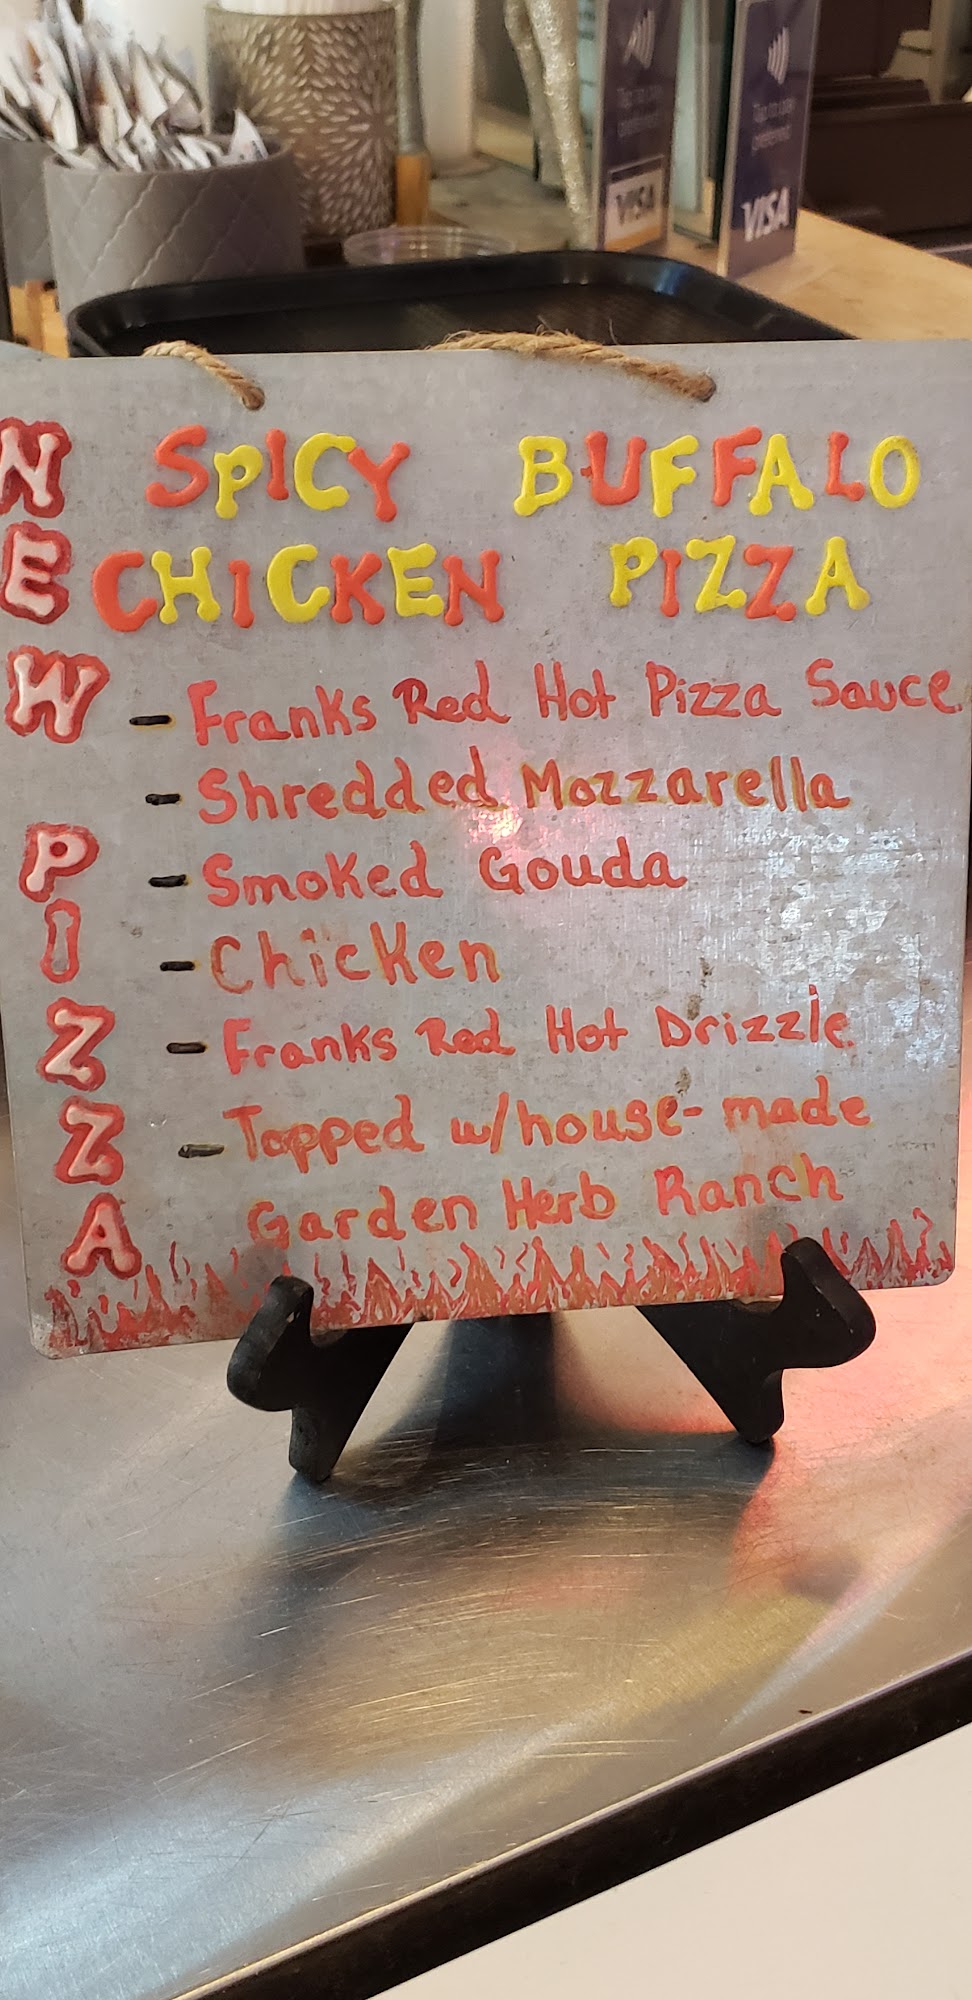 Tap to pay
preferred
VISA
Tap to pay
preferred
VISA
NEW PIZZA
SPICY BUFFALO
CHICKEN PIZZA
- Franks Red Hot Pizza Sauce
- Shredded Mozzarella
- Smoked Gouda
- Chicken
- Franks Red Hot Drizzle
- Topped w/house-made
Garden Herb Ranch